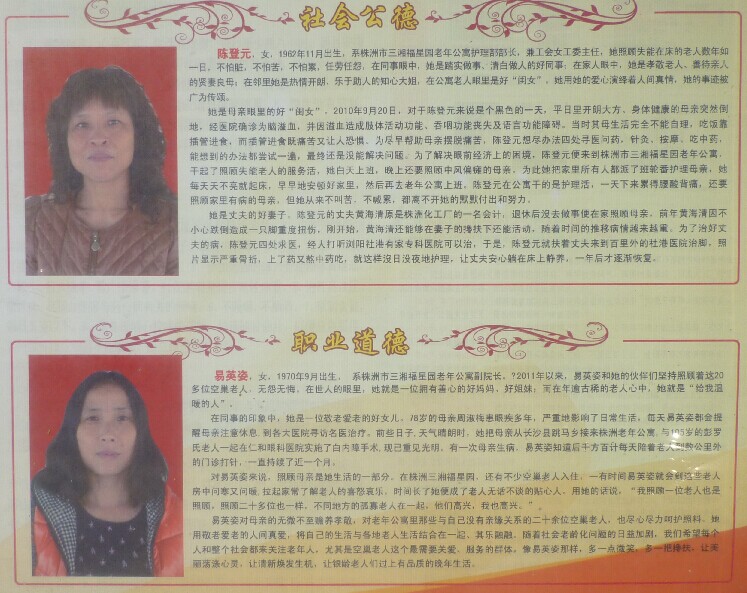 社会公德
陈登元，女，1962年11月出生，系株洲市三湘福星园老年公寓护理部部长，兼工会女工委主任，她照顾失能在床的老人数年如
一日，不怕脏，不怕苦，不怕累，任劳任怨，在同事眼中，她是踏实做事、清白做人的好同事；在家人眼中，她是孝敬老人、善待亲人
的贤妻良母；在邻里她是热情开朗、乐于助人的知心大姐，在公寓老人眼里是好“闺女”，她用她的爱心演绎着人间真情，她的事迹被
广为传颂。
她是母亲眼里的好“闺女”，2010年9月20日，对于陈登元来说是个黑色的一天，平日里开朗大方、身体健康的母亲突然倒
地，经医院确诊为脑溢血，并因溢血造成肢体活动功能、吞咽功能丧失及语言功能障碍。当时其母生活完全不能自理，吃饭靠
插管进食，而插管进食既痛苦又让人恐惧。为尽早帮助母亲摆脱痛苦，陈登元想尽办法四处寻医问药，针灸，按摩，吃中药，
能想到的办法都尝试一遍，最终还是没能解决问题。为了解决眼前经济上的困境，陈登元便来到株洲市三湘福星园老年公寓，
干起了照顾失能老人的服务活，她白天上班，晚上还要照顾中风偏瘫的母亲，为此她把家里所有人都派了班轮番护理母亲，她
每天天不亮就起床，早早地安顿好家里，然后再去老年公寓上班，陈登元在公寓干的是护理活，一天下来累得腰酸背痛，还要
照顾家里有病的母亲，但她从来不叫苦、不喊累，都离不开她的默默付出和努力。
她是丈夫的好妻子，陈登元的丈夫黄海清原是株洲化工厂的一名会计，退休后没去做事便在家照顾母亲，前年黄海清因不
小心跌倒造成一只脚重度扭伤，刚开始，黄海清还能够在妻子的搀扶下还能活动，随着时间的推移病情越来越重，为了治好丈
夫的病，陈登元四处求医，经人打听浏阳社港有家专科医院可以治，于是，陈登元就扶着丈夫来到百里外的社港医院治脚，照
片显示严重骨折，上了药又熬中药吃，就这样沒日没夜地护理，让丈夫安心躺在床上静养，一年后才逐渐恢复。
职业道德
易英姿，女，1970年9月出生， 系株洲市三湘福星园老年公寓副院长，?2011年以来，易英姿和她的伙伴们坚持照顾着这20
多位空巢老人，无怨无悔，在世人的眼里，她就是一位拥有善心的好妈妈，好姐妹，而在年逾古稀的老人心中，她就是“给我温
暖的人”。
在同事的印象中，她是一位敬老爱老的好女儿，78岁的母亲周淑梅患眼疾多年，严重地影响了日常生活，每天易英姿都会提
醒母亲注意休息，到各大医院寻访名医治疗。前些日子，天气晴朗时，她把母亲从长沙县跳马乡接来株洲老年公寓，与105岁的彭罗
氏老人一起在仁和眼科医院实施了白内障手术，现已重见光明，有一次母亲生病，易英姿知道后千方百计每天陪着老人到数公里外
的门诊打针，一直持续了近一个月。
对易英姿来说，照顾母亲是她生活的一部分，在株洲三湘福星园，还有不少空巢老人入住，一有时间易英姿就会到这些老人
房中问寒又问暖，拉起家常了解老人的喜怒哀乐，时间长了她便成了老人无话不谈的贴心人，用她的话说，“我照顾一位老人也是
照顾，照顾二十多位也一样，不同地方的孤寡老人在一起，他们高兴，我也高兴。”
易英姿对母亲的无微不至赡养孝敬，对老年公寓里那些与自己没有亲缘关系的二十余位空巢老人，也尽心尽力呵护照料，她
用敬老爱老的人间真爱，将自己的生活与各地老人生活结合在一起，其乐融融，随着社会老龄化问题的日益加剧，我们希望每个
人和整个社会都来关注老年人，尤其是空巢老人这个最需要关爱、服务的群体，像易英姿那样，多一点微笑，多一把搀扶，让美
丽荡涤心灵，让清新焕发生机，让银龄老人们过上有品质的晚年生活。